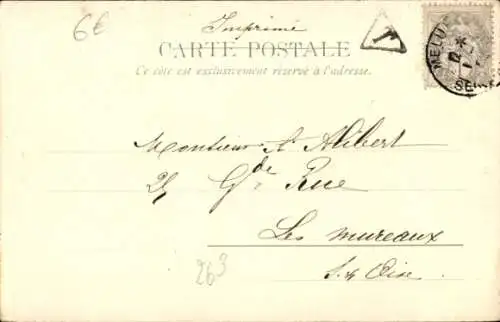 6€
Imprimé
T
CARTE POSTALE
Ce côté est exclusivement réservé à l'adresse.
MELUN
SEINE
Monsieur A Alibert
25 Gde Rue
Les mureaux
S. & Oise.
263